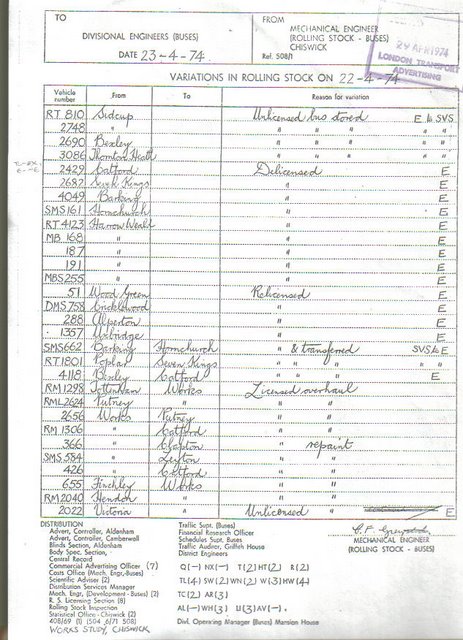 TO
DIVISIONAL ENGINEERS (BUSES)
DATE 23-4-74.
FROM
MECHANICAL ENGINEER
(ROLLING STOCK - BUSES)
CHISWICK
Ref. 508/1
29 APR 1974
LONDON TRANSPORT
ADVERTISING
VARIATIONS IN ROLLING STOCK ON 22-4-74.
Vehicle number From To Reason for variation
RT 810 Sidcup Unlicensed bus stored E to SVS
2748 " " " " " "
2690 Bexley " " " " "
3086 Thornton Heath " " " " "
2429 Catford Delicensed E
2682 Seven Kings " E
4049 Barking " E
SMS 161 Hornchurch " E
RT 4123 Harrow Weald " E
MB 168 " " E
187 " " E
191 " " E
MBS 255 " " E
51 Wood Green Relicensed E
DMS 758 Cricklewood " E
288 Alperton " E
1357 Uxbridge " E
SMS 662 Barking Hornchurch " & transferred SVS to E
RT 1801 Poplar Seven Kings " " " " "
4118 Bexley Catford " " " E
RM 1298 Tottenham Works Licensed overhaul
RML 2624 Putney " " "
2656 Works Putney " "
RM 1306 " Catford " "
366 " Clapton " repaint
SMS 584 " Leyton " "
426 " Catford " "
655 Finchley Works " "
RM 2040 Hendon " " "
2022 Victoria " Unlicensed " E
DISTRIBUTION
Advert, Controller, Aldenham
Advert, Controller, Camberwell
Blinds Section, Aldenham
Body Spec, Section,
Central Record
Commercial Advertising Officer (7)
Costs Office (Mech. Engr.-Buses)
Scientific Adviser (2)
Distribution Services Manager
Mech. Engr, (Development - Buses) (2)
R. S. Licensing Section (8)
Rolling Stock Inspection
Statistical Office - Chiswick (2)
408/69 (1) (504, 6/71 508)
WORKS STUDY, CHISWICK
Traffic Supt. (Buses)
Financial Research Officer
Schedules Supt. Buses
Traffic Auditor, Griffith House
District Engineers
Q(-) NX(-) T(2) HT(2) R(2)
TL(4) SW(2) WN(2) W(3) HW(4)
TC(2) AR(3)
AL(-) WH(3) U(3) AV(-).
Divl. Operating Manager (Buses) Mansion House
MECHANICAL ENGINEER
(ROLLING STOCK - BUSES)